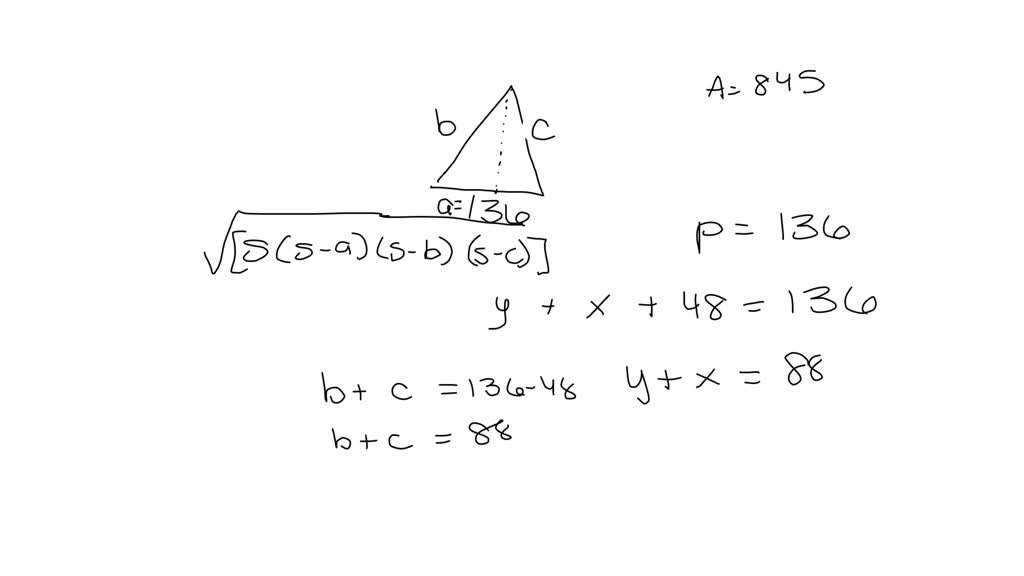 A= 845
b
c
a=136
√[s(s-a)(s-b)(s-c)]
p = 136
y + x + 48 = 136
b+ c = 136-48
y+x = 88
b+c = 88